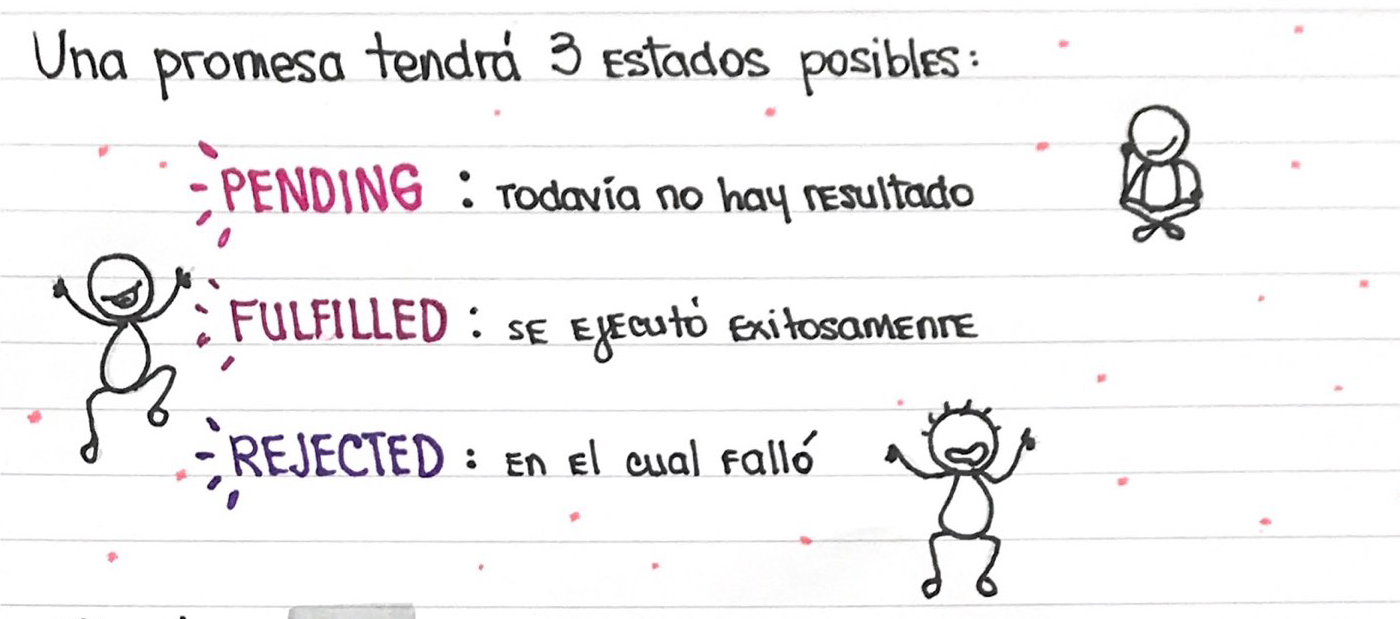 Una promesa tendrá 3 Estados posibles:
PENDING : Todavía no hay resultado
FULFILLED : SE EjEcutó Exitosamente
REJECTED : En El cual Falló